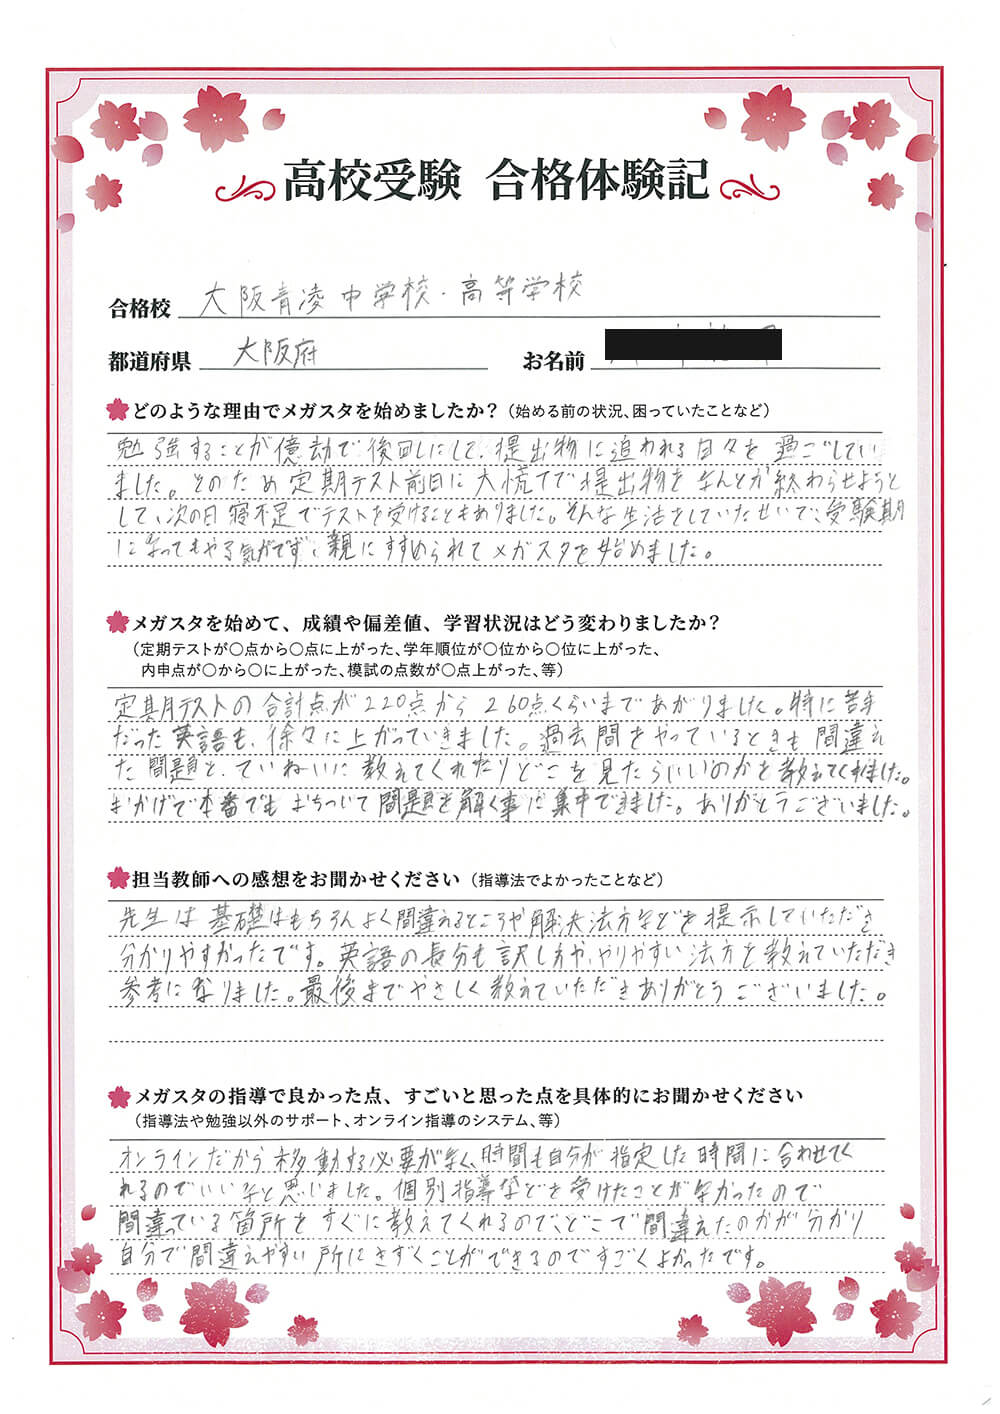 高校受験 合格体験記
合格校 大阪青凌中学校・高等学校
都道府県 大阪府 お名前
どのような理由でメガスタを始めましたか？（始める前の状況、困っていたことなど）
勉強することが億劫で後回しにして、提出物に追われる日々を過ごしてい
ました。そのため定期テスト前日に大慌てで提出物をなんとか終わらせようと
して、次の日寝不足でテストを受けることもありました。そんな生活をしていたせいで、受験期
になってもやる気がでず、親にすすめられてメガスタを始めました。
メガスタを始めて、成績や偏差値、学習状況はどう変わりましたか？
（定期テストが〇点から〇点に上がった、学年順位が〇位から〇位に上がった、
内申点が〇から〇に上がった、模試の点数が〇点上がった、等）
定期テストの合計点が220点から260点くらいまであがりました。特に苦手
だった英語も、徐々に上がっていきました。過去問をやっているときも間違え
た問題を、ていねいに教えてくれたりどこを見たらいいのかを教えてくれました。
おかげで本番でもおちついて問題を解く事に集中できました。ありがとうございました。
担当教師への感想をお聞かせください（指導法でよかったことなど）
先生は基礎はもちろんよく間違えるところや解決法方などを提示していただき
分かりやすかったです。英語の長分も訳し方や、やりやすい法方を教えていただき
参考になりました。最後までやさしく教えていただきありがとうございました。
メガスタの指導で良かった点、すごいと思った点を具体的にお聞かせください
（指導法や勉強以外のサポート、オンライン指導のシステム、等）
オンラインだから移動する必要がなく、時間も自分が指定した時間に合わせてく
れるのでいいなと思いました。個別指導などを受けたことがなかったので
間違っている箇所をすぐに教えてくれるので、どこで間違えたのかが分かり
自分で間違えやすい所にきずくことができるのですごくよかったです。